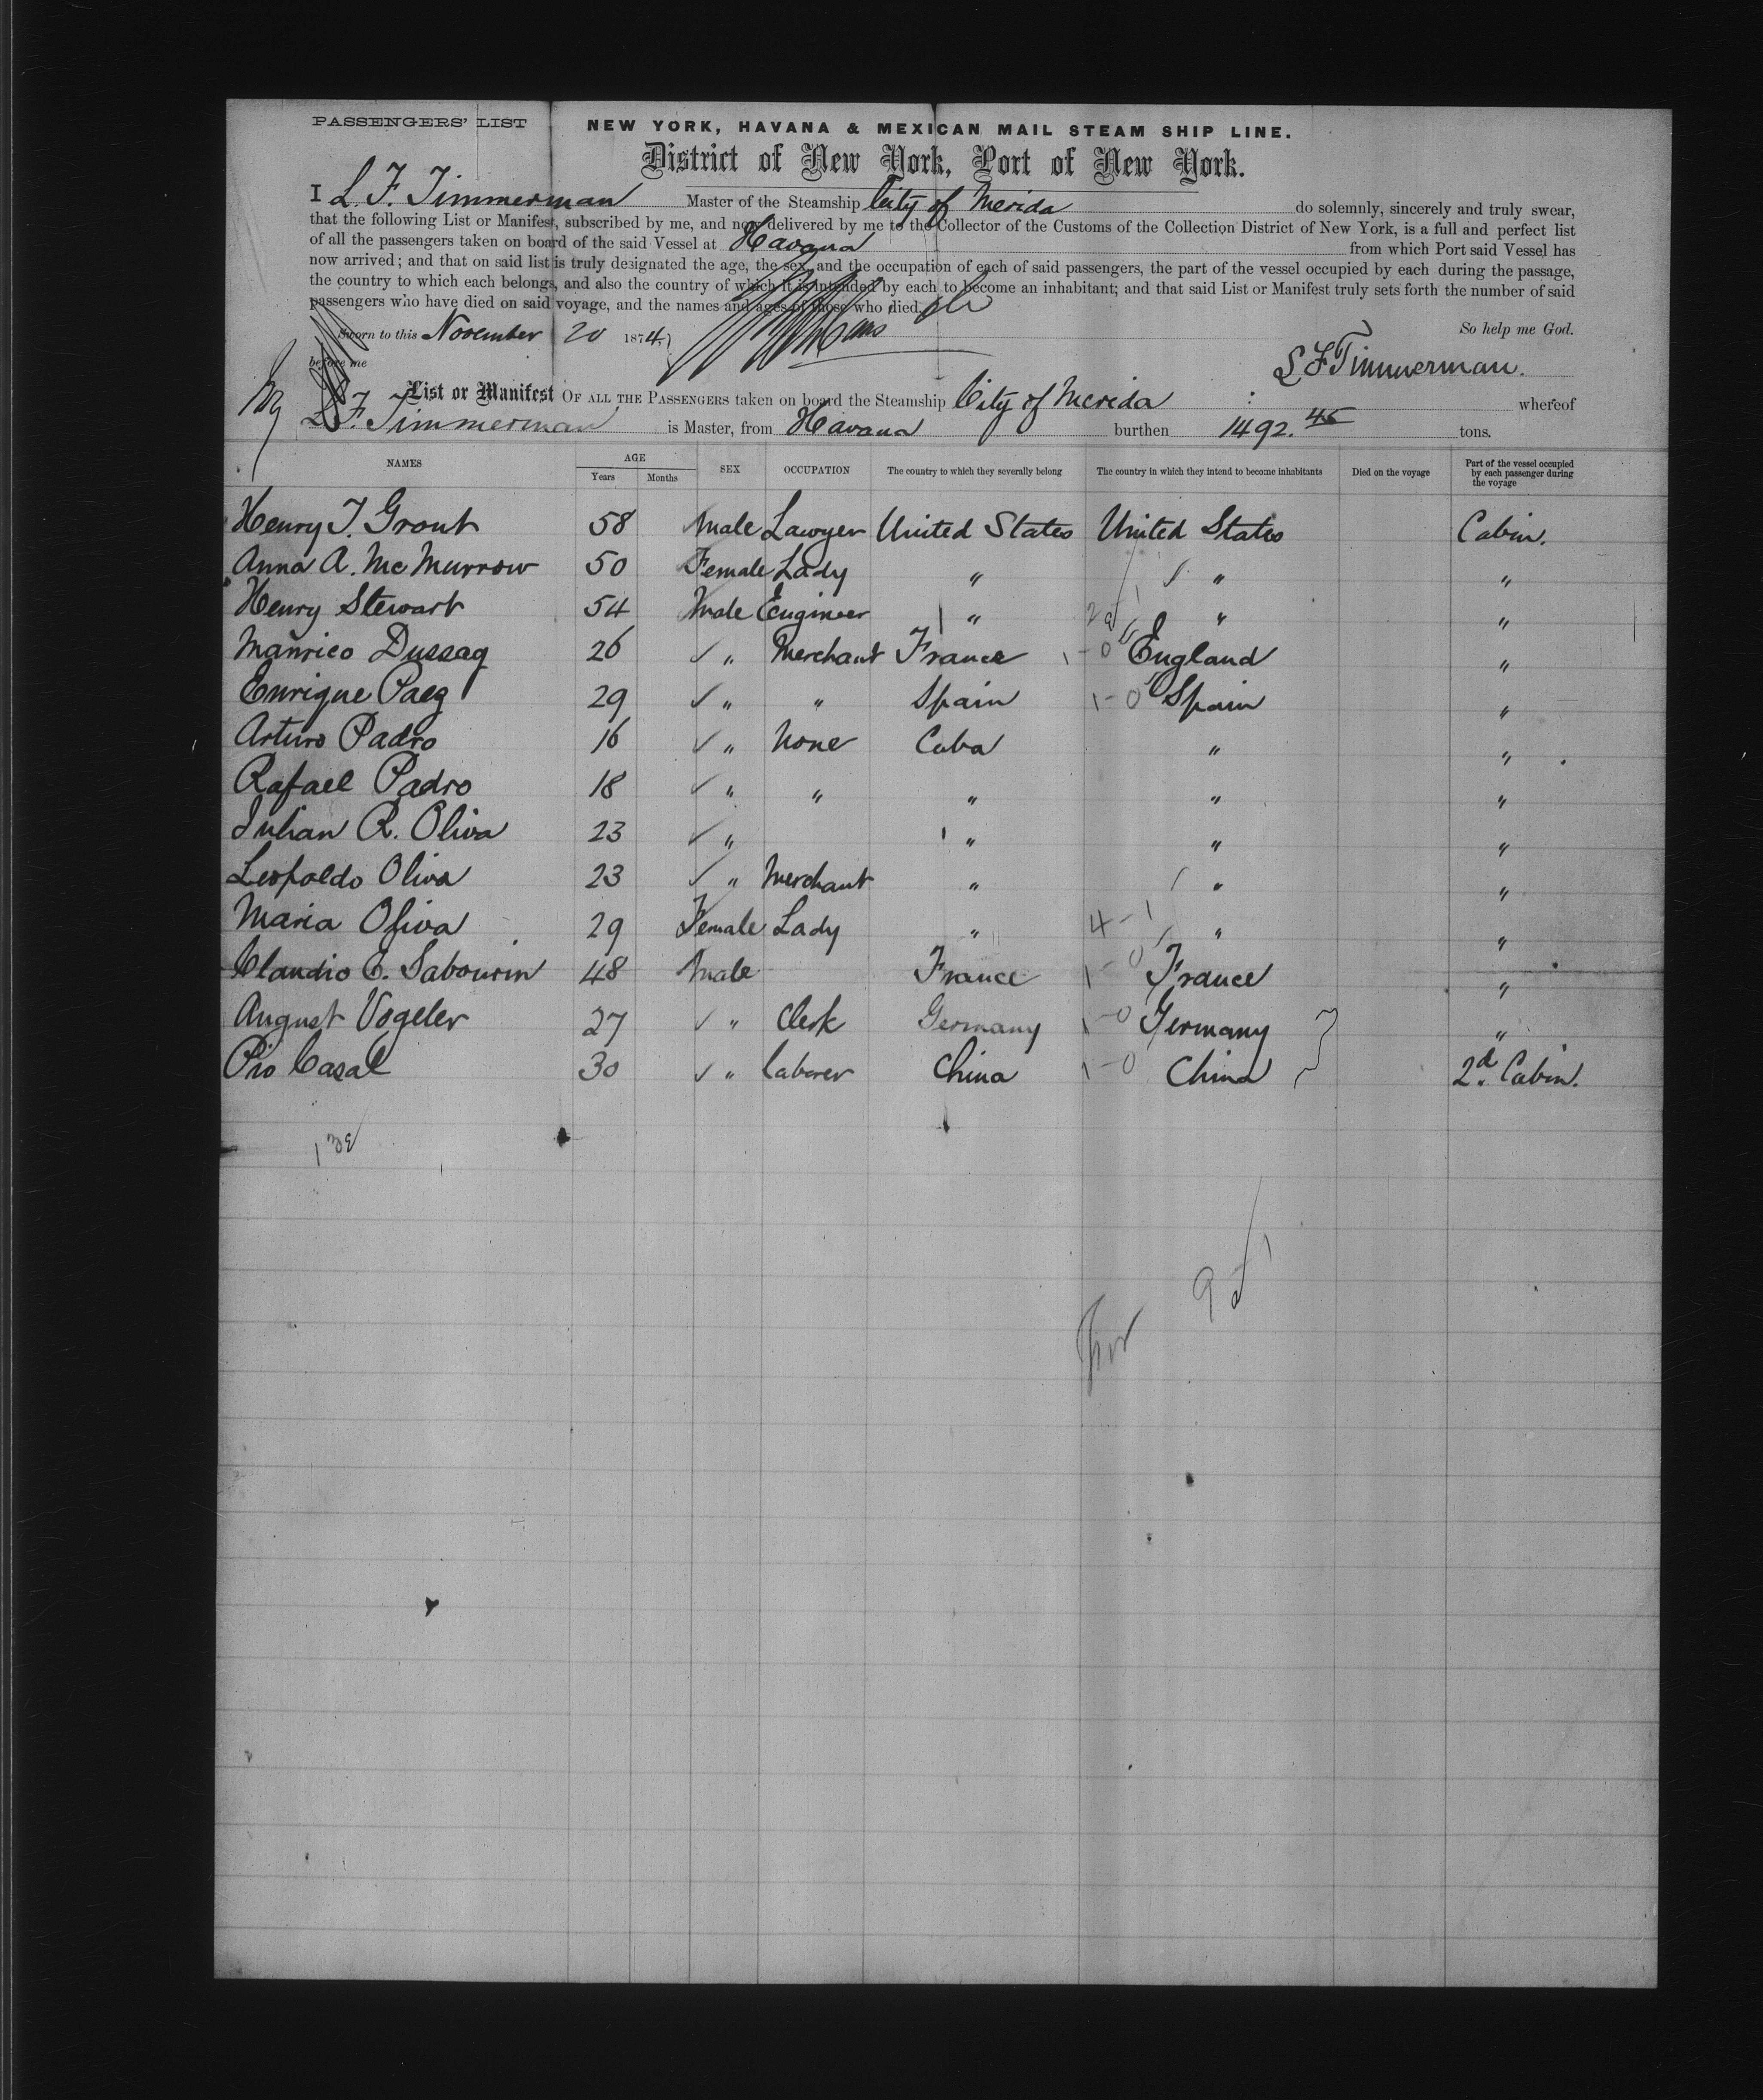 PASSENGERS' LIST
NEW YORK, HAVANA & MEXICAN MAIL STEAM SHIP LINE.
District of New York, Port of New York.
I L. F. Timmerman Master of the Steamship City of Merida do solemnly, sincerely and truly swear,
that the following List or Manifest, subscribed by me, and now delivered by me to the Collector of the Customs of the Collection District of New York, is a full and perfect list
of all the passengers taken on board of the said Vessel at Havana from which Port said Vessel has
now arrived; and that on said list is truly designated the age, the sex, and the occupation of each of said passengers, the part of the vessel occupied by each during the passage,
the country to which each belongs, and also the country of which it is intended by each to become an inhabitant; and that said List or Manifest truly sets forth the number of said
passengers who have died on said voyage, and the names and ages of those who died.
Sworn to this November 20 1874, So help me God.
before me L F Timmerman.
List or Manifest OF ALL THE PASSENGERS taken on board the Steamship City of Merida whereof
L. F. Timmerman is Master, from Havana burthen 1492.45 tons.
NAMES AGE Years Months SEX OCCUPATION The country to which they severally belong The country in which they intend to become inhabitants Died on the voyage Part of the vessel occupied by each passenger during the voyage
Henry T. Grout 58 Male Lawyer United States United States Cabin.
Anna A. McMurrow 50 Female Lady " " "
Henry Stewart 54 Male Engineer " " "
Manrico Dussaq 26 " Merchant France 1-0 England "
Enrique Paez 29 " " Spain 1-0 Spain "
Arturo Padro 16 " None Cuba " "
Rafael Padro 18 " " " " "
Julian R. Oliva 23 " " " "
Leopoldo Oliva 23 " Merchant " " "
Maria Oliva 29 Female Lady " 4-1 " "
Claudio E. Sabourin 48 Male France 1-0 France "
August Vogeler 27 " Clerk Germany 1-0 Germany "
Pio Casal 30 " laborer China 1-0 China 2d. Cabin.